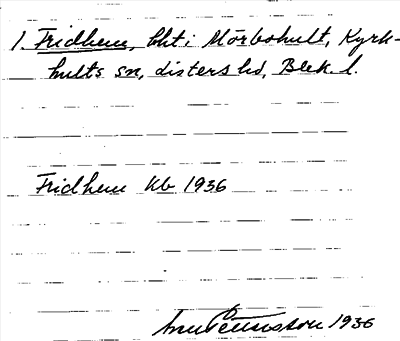 1. Fridhem, lht i Mörbohult, Kyrk-
hults sn, Listers hd, Blek. l.
Fridhem Kb 1936
1936